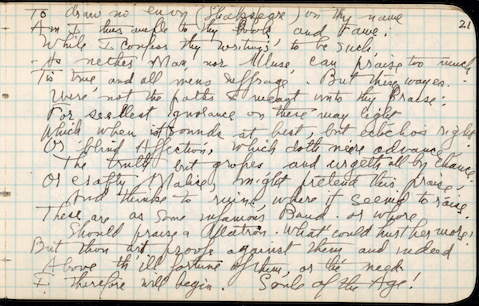 21
To draw no envy (Shakespeare) on thy name
Am I thus ample to thy Book, and Fame:
While I confess thy writings to be such,
As neither Man, nor Muse can praise too much.
Tis true and all mens suffrage. But these wayes.
Were not the paths I meant unto thy Praise:
For seeliest Ignorance on these may light
Which when it sounds at best, but echo's right
Or blind Affection, which doth nere advance
The truth but gropes and urgeth all by chance
Or crafty Malice, might pretend this praise,
And thinke to ruine, where it seem'd to raise.
These are as some infamous Baud or whore
Should praise a Matron. What could hurt her more?
But thou art proofe against them and indeed
Above th'ill fortune of them, or the need
I therefore will begin. Soule of the Age!